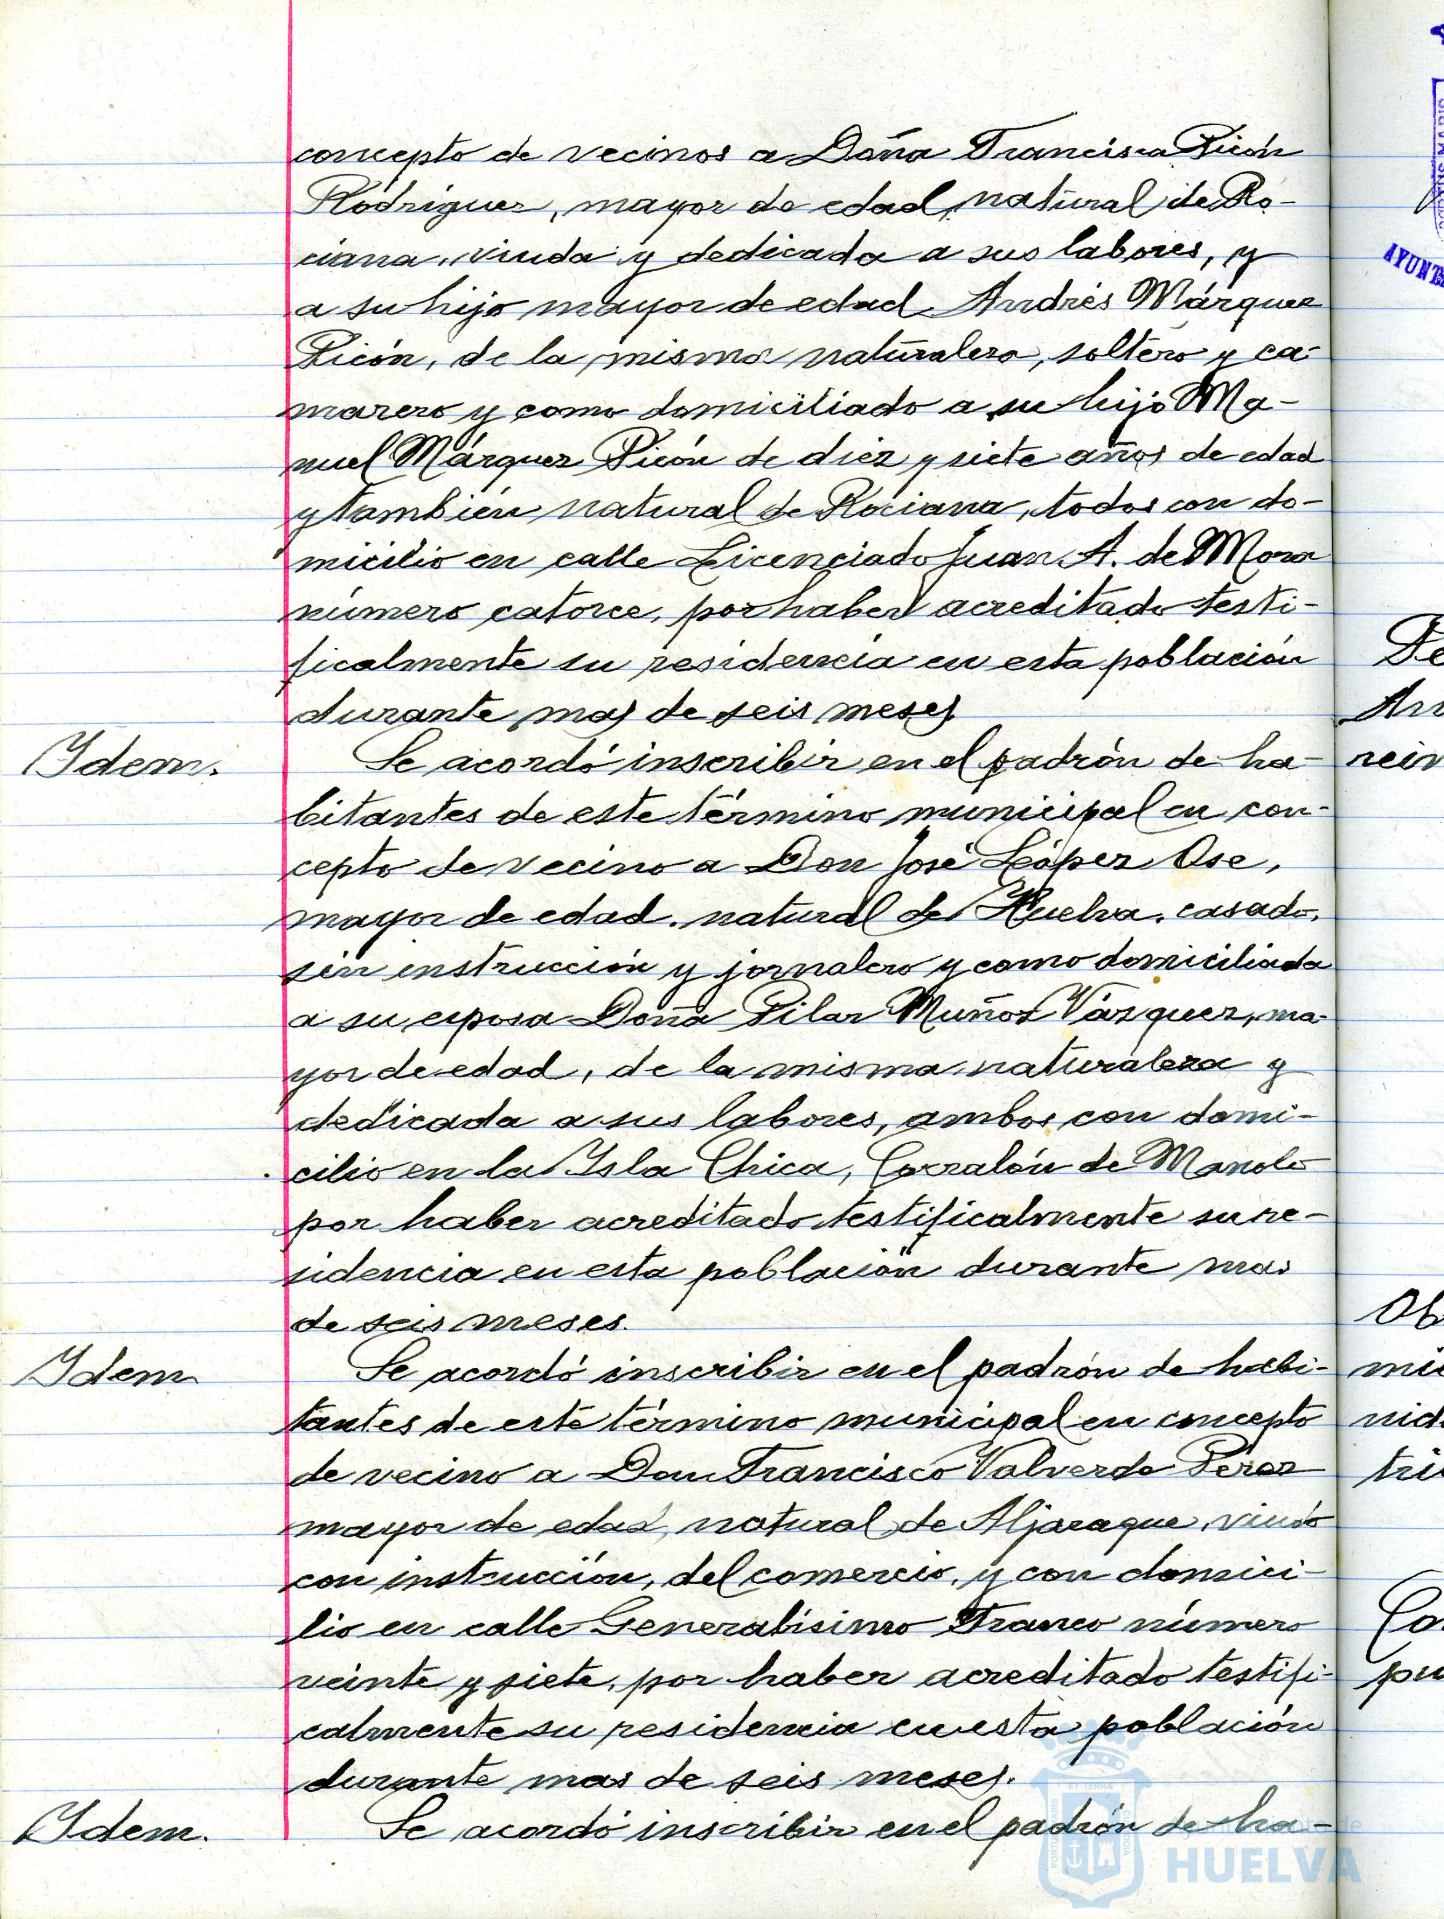 concepto de vecinos a Doña Francisca Picón
Rodríguez, mayor de edad, natural de Ro-
ciana, viuda y dedicada a sus labores, y
a su hijo mayor de edad Andrés Márquez
Picón, de la misma naturaleza, soltero y ca-
marero y como domiciliado a su hijo Ma-
nuel Márquez Picón de diez y siete años de edad
y también natural de Rociana, todos con do-
micilio en calle Licenciado Juan A. de Mora
número catorce, por haber acreditado testi-
ficalmente su residencia en esta población
durante mas de seis meses
Idem.
Se acordó inscribir en el padrón de ha-
bitantes de este término municipal en con-
cepto de vecino a Don José López Ose,
mayor de edad, natural de Huelva, casado,
sin instrucción y jornalero y como domiciliada
a su esposa Doña Pilar Muñoz Vázquez, ma-
yor de edad, de la misma naturaleza y
dedicada a sus labores, ambos con domi-
cilio en la Isla Chica, Corralón de Manolo
por haber acreditado testificalmente su re-
sidencia en esta población durante mas
de seis meses.
Idem
Se acordó inscribir en el padrón de habi-
tantes de este término municipal en concepto
de vecino a Don Francisco Valverde Pérez
mayor de edad, natural de Aljaraque, viudo
con instrucción, del comercio, y con domici-
lio en calle Generalísimo Franco número
veinte y siete, por haber acreditado testifi-
calmente su residencia en esta población
durante mas de seis meses.
Idem.
Se acordó inscribir en el padrón de ha-
HUELVA